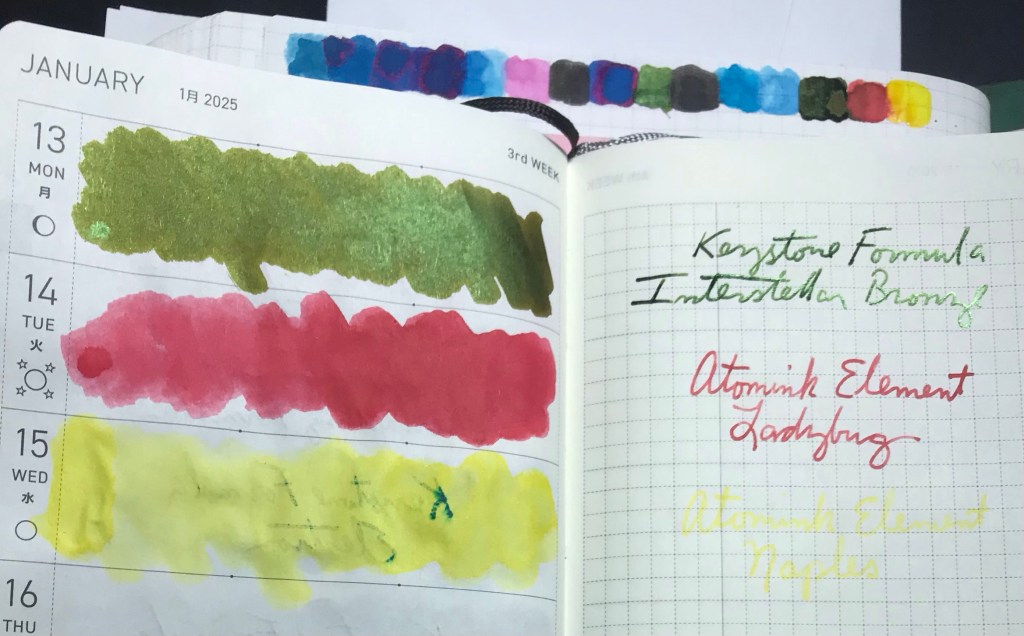 JANUARY
1月 2025
3rd WEEK
13
MON
月
14
TUE
火
15
WED
水
16
THU
Keystone Formula
Interstellar Bronze
Atomink Element
Ladybug
Atomink Element
Naples